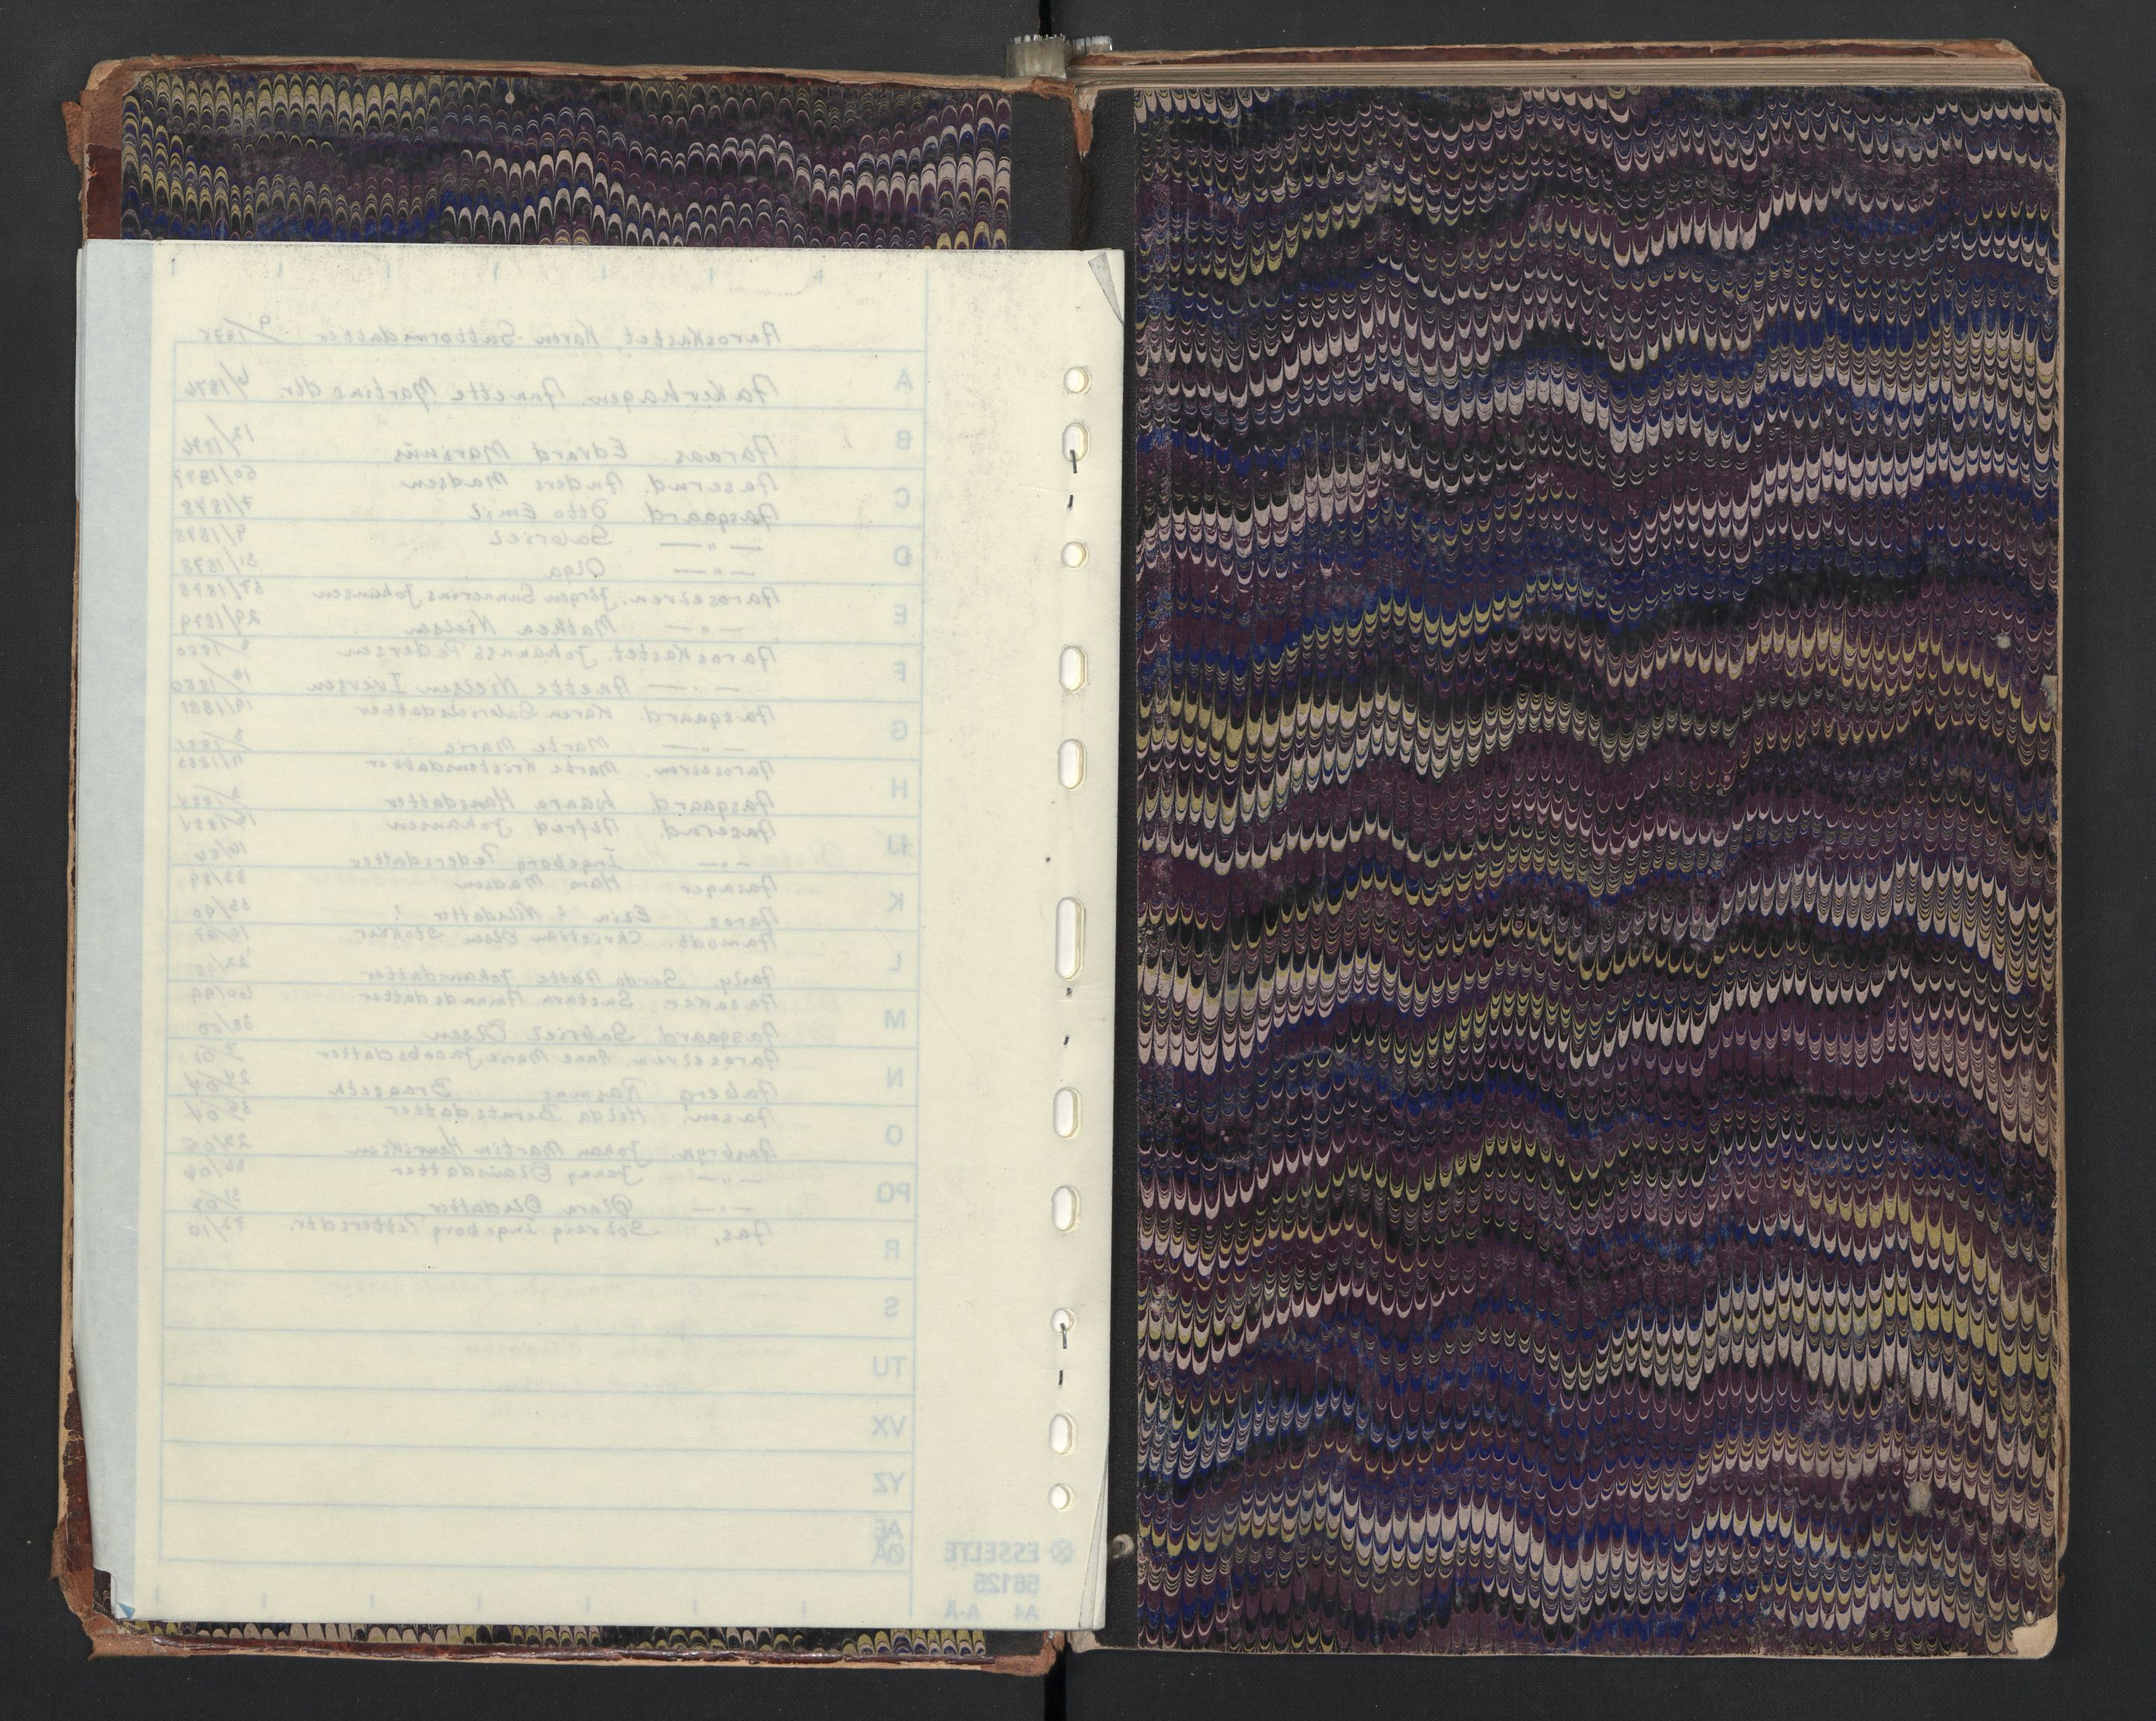 Aaroskastet, Karen Guttormsdatter 9/1875
A
Aakerhagen. Annette Martine dtr. 4/1876
B
Aaraas. Edvard Marinius 12/1876
Aasernd. Anders Madsen 60/1877
C
Aasgaard. Otto Emil 7/1878
— " — Gabriel 9/1878
D
— " — Olga 31/1878
Aaroselven. Jörgen Johansen 57/1878
E
— " — Mathea Nielsen 29/1879
Aaroskastet. Johannes Pedersen /1880
F
— " — Anette Nielsen Iversen 10/1880
Aasgaard. Karen Gabrielsdatter 19/1881
G
— " — Marte Marie
Aaroselven. Marte Kristensdatter 11/1883
H
Aasgaard Laura Hansdatter
Aasernd. Alfred Johansen
IJ
— " — Ingeborg Pedersdatter
Aasager Hans Madsen 33/89
K
Aaros. Elin ? Nilsdatter ! 33/90
Aamodt. Christian Olsen Stokker
L
Aarly. Gerda Aasta Johansdatter
Aasaker Gustava Amundsdatter 60/99
M
Aasgaard Gabriel Olsen 38/00
Aaroselven. Anne Marie Jacobsdatter
N
Aaberg Rasmus Braaseth 24/04
Aasen. Helda Berntsdatter 39/04
O
Aasbryn Johan Martin Henriksen 23/05
— " — Jenny Olausdatter
PQ
— " — Olara Olsdatter
Aas, Solveig Ingeborg Pettersdtr. 72/10
R
S
TU
VX
YZ
ÆÄ
ØÅ
ESSELTE
56125
A4 A-Å